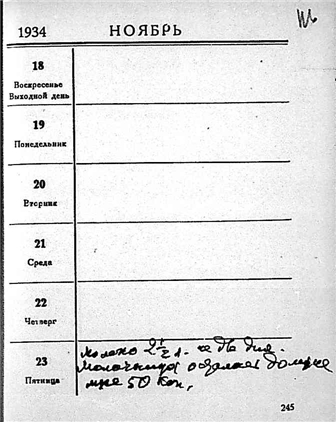 1934 НОЯБРЬ
18
Воскресенье
Выходной день
19
Понедельник
20
Вторник
21
Среда
22
Четверг
молоко 2½ л. на два дня.
23
Молочница осталась должна
Пятница
мне 50 коп.
245